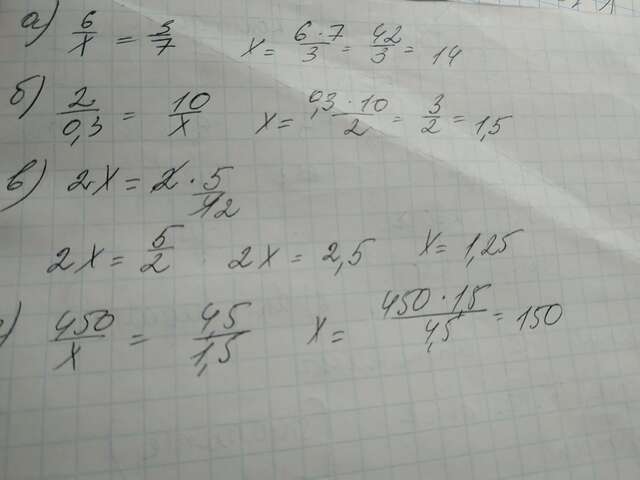 а) 6/x = 3/7 x = 6·7/3 = 42/3 = 14
б) 2/0,3 = 10/x x = 0,3·10/2 = 3/2 = 1,5
в) 2x = 2·5/42
2x = 5/2 2x = 2,5 x = 1,25
г) 450/x = 4,5/1,5 x = 450·1,5/4,5 = 150